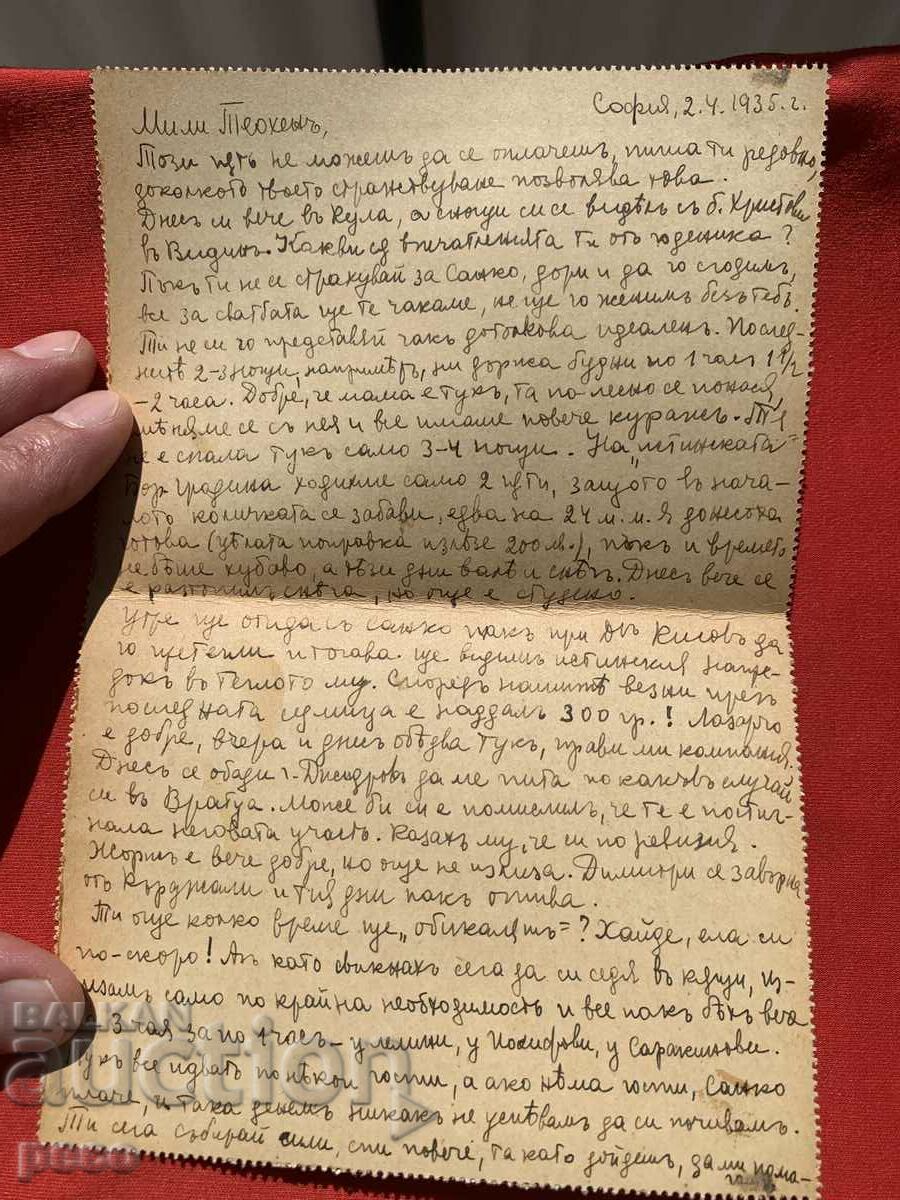 София, 2.4.1935 г.
Мили Теохенъ,
Този пѫть не можешъ да се оплачешъ, пиша ти редовно,
доколкото твоето странствуване позволява това.
Днесъ си вече въ Кула, а снощи си се видѣлъ съ б. Христови
въ Видинъ. Какви сѫ впечатленията ти отъ годеника?
Пъкъ ти не се страхувай за Санко, дори и да го сгодимъ,
все за сватбата ще те чакаме, не ще го женимъ безъ тебъ.
Ти не си го представяй чакъ дотолкова идеаленъ. Послед-
нитѣ 2-3 нощи, напримѣръ, ни държа будни по 1 часъ 1 1/2
-2 часа. Добре, че мама е тукъ, та по лесно се понася,
смѣняме се съ нея и все имаме повече куражъ. Тя
не е спала тукъ само 3-4 нощи. На „истинската"
Бор. градина ходихме само 2 пѫти, защото въ нача-
лото количката се забави, едва на 24 м.м. я донесоха
готова (цѣлата поправка излѣзе 200 лв.), пъкъ и времето
не бѣше хубаво, а тѣзи дни валѣ и снѣгъ. Днесъ вече се
е разтопилъ снѣга, но още е студено.
Утре ще отида съ Санко пакъ при Д-ръ Кисовъ да
го претегли и тогава ще видимъ истинския напре-
дъкъ въ теглото му. Споредъ нашитѣ везни презъ
последната седмица е наддалъ 300 гр.! Лазарчо
е добре, вчера и днесъ обѣдва тукъ, прави ми компания.
Днесъ се обади г. Джидровъ да ме пита по какъвъ случай
си въ Вратца. Може би си е помислилъ, че те е постиг-
нала неговата участь. Казахъ му, че си по ревизия.
Жоржъ е вече добре, но още не излиза. Димитри се завърна
отъ Кърджали и тия дни пакъ отива.
Ти още колко време ще „обикаляшъ"? Хайде, ела си
по-скоро! Азъ като свикнахъ сега да си седя въ кѫщи, из-
лизамъ само по крайна необходимость и все пакъ бѣхъ вече
на 3 чая за по 1 часъ – у лелини, у Йосифови, у Саракинови.
Тукъ все идватъ по нѣкои гости, а ако нѣма гости, Санко
плаче, и така денемъ никакъ не успѣвамъ да си почивамъ.
Ти сега събирай сили, спи повече, та като дойдешъ, да ми пома-
гашъ
BALKAN
auction
peceo